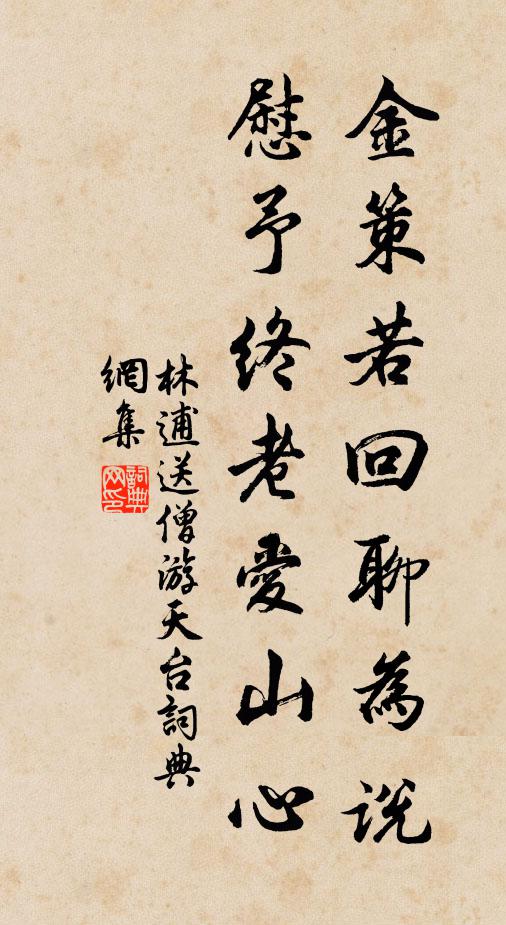 金策若回聊為説
慰予終老愛山心
林逋送僧游天台詞典
網集
詞典
网印